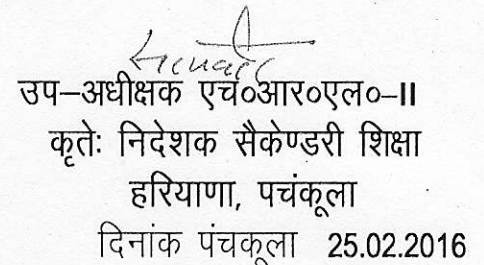 उप–अधीक्षक एच०आर०एल०–II
कृतेः निदेशक सैकेण्डरी शिक्षा
हरियाणा, पचंकूला
दिनांक पंचकूला 25.02.2016